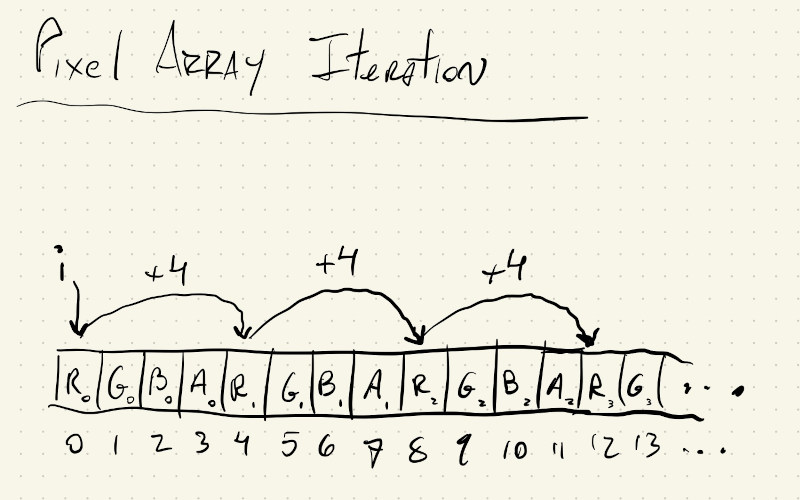 Pixel ARRAY Iteration
i +4 +4 +4
R₀ G₀ B₀ A₀ R₁ G₁ B₁ A₁ R₂ G₂ B₂ A₂ R₃ G₃ ...
0 1 2 3 4 5 6 7 8 9 10 11 12 13 ...